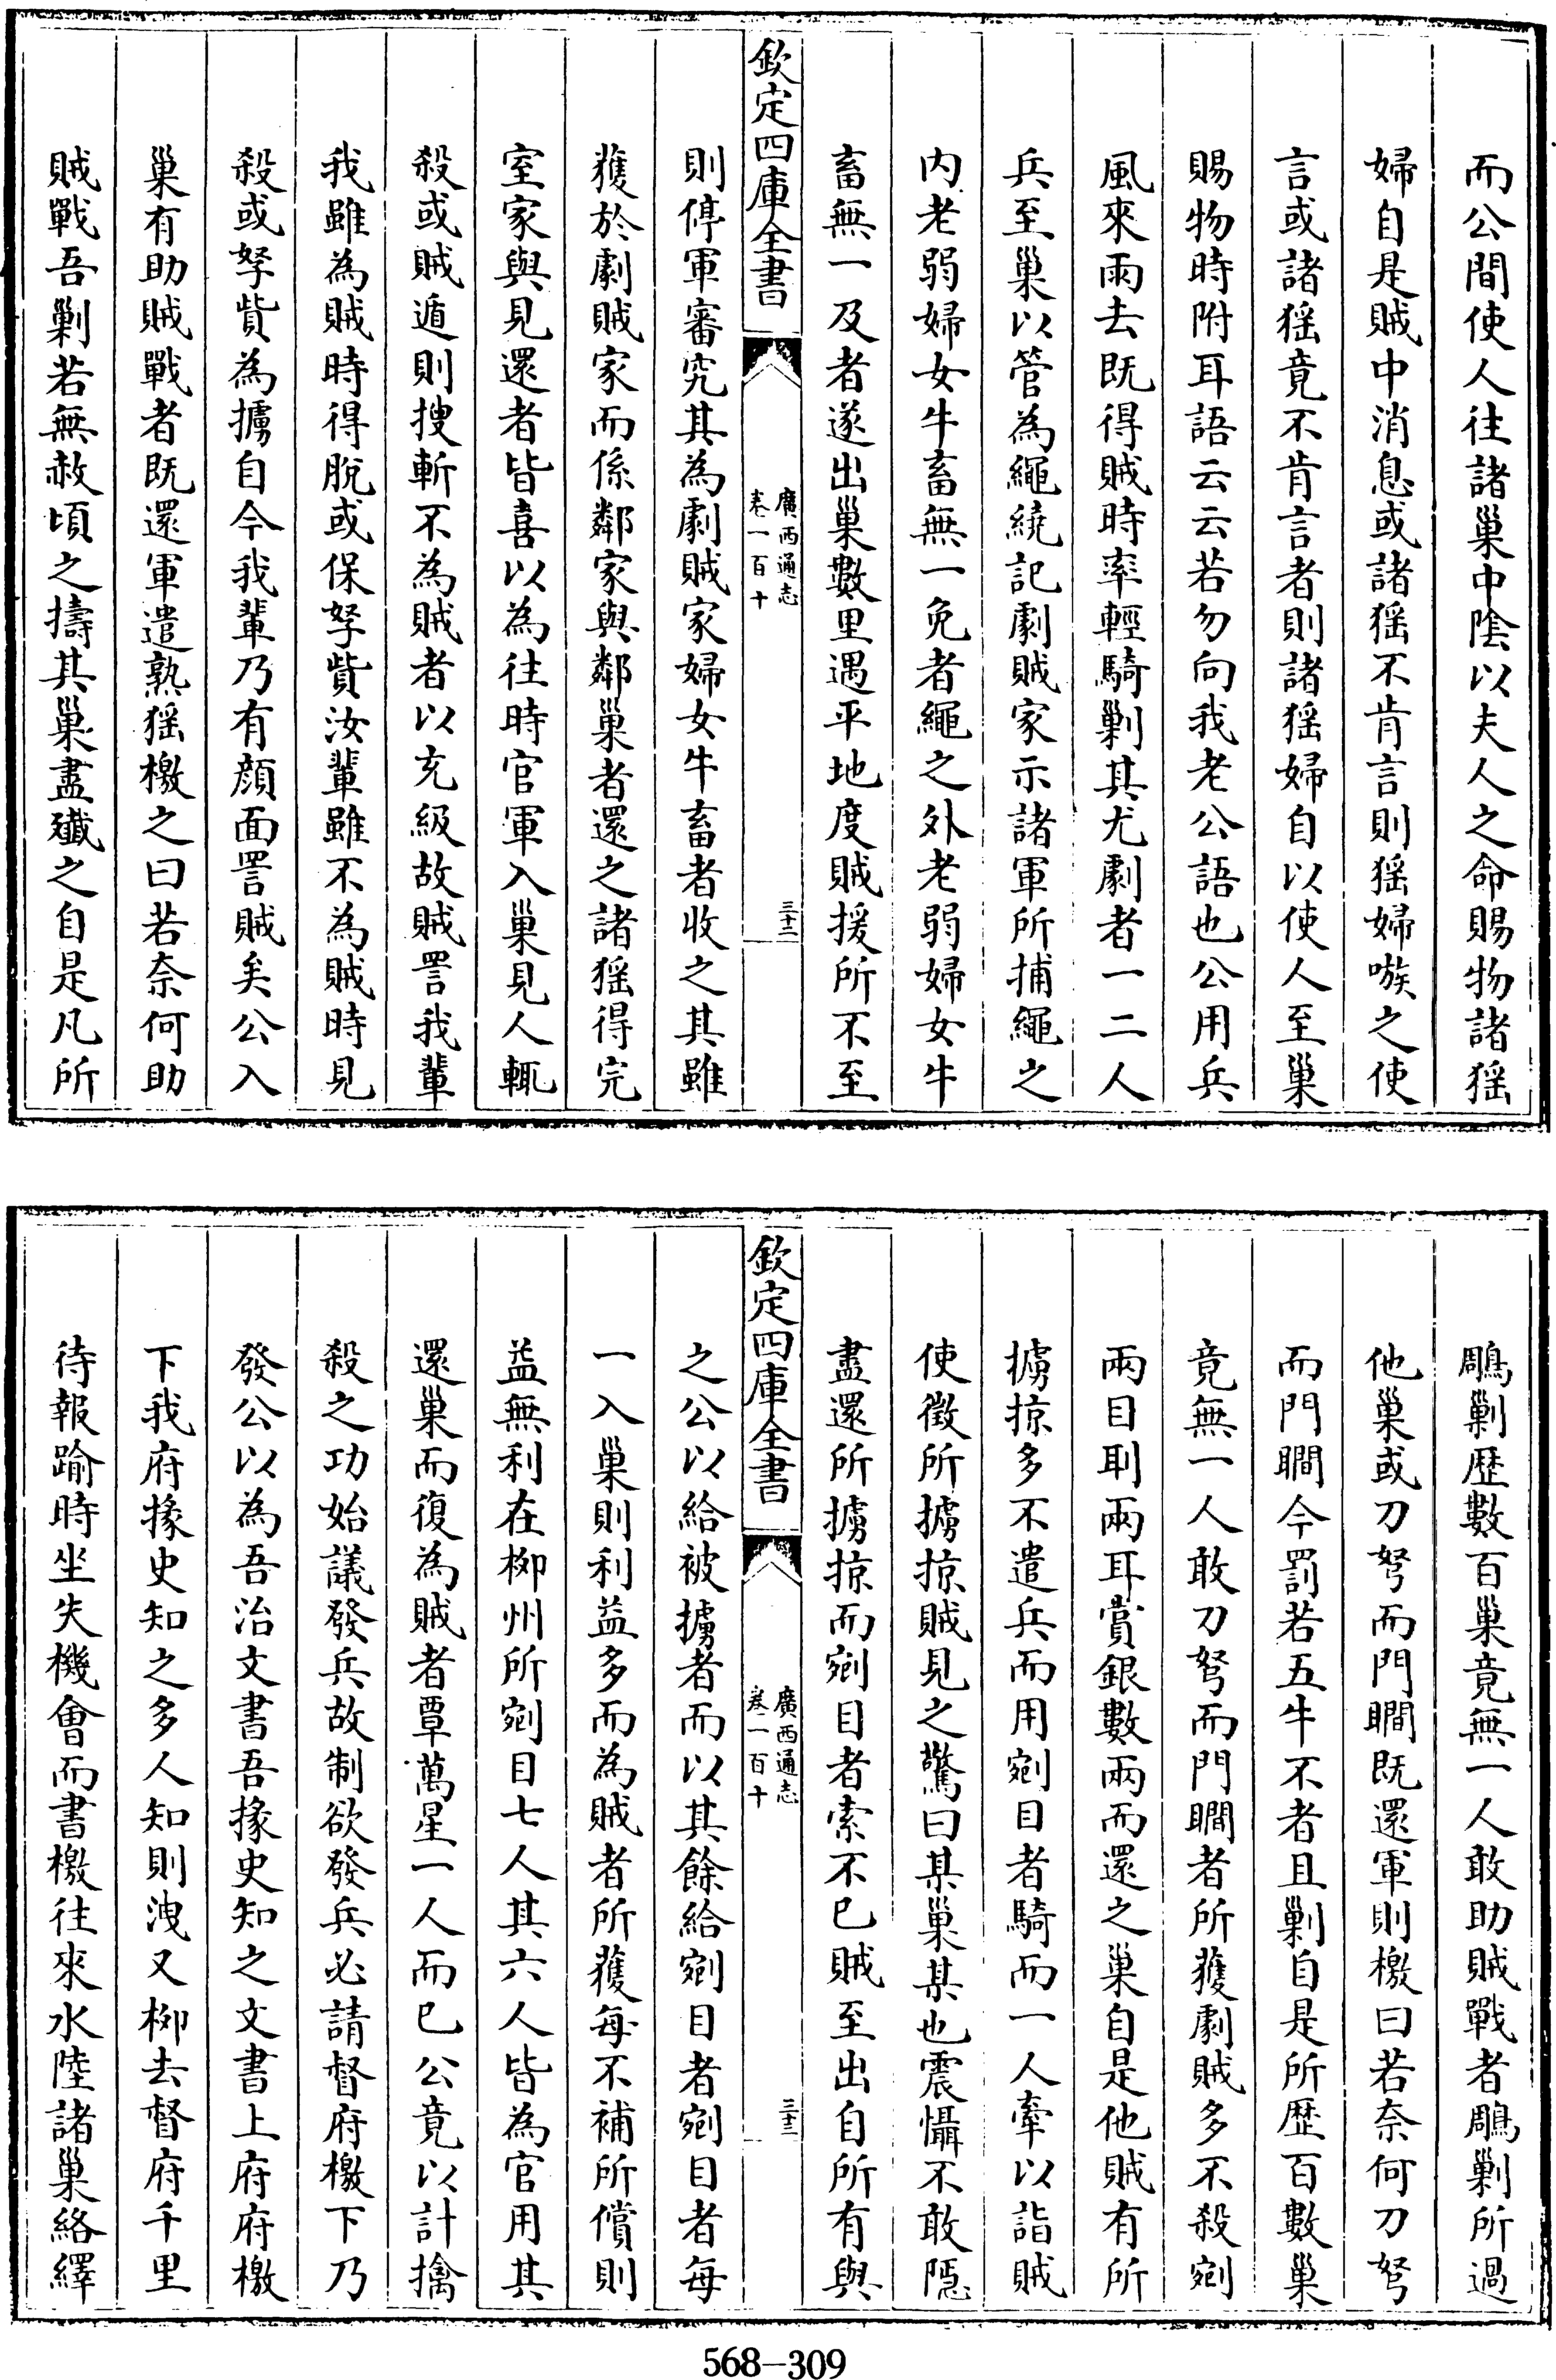 而公間使人往諸巢中陰以夫人之命賜物諸猺
婦自是賊中消息或諸猺不肯言則猺婦嗾之使
言或諸猺竟不肯言者則諸猺婦自以使人至巢
賜物時附耳語云云若勿向我老公語也公用兵
風來雨去既得賊時率輕騎剿其尤劇者一二人
兵至巢以管為繩繞記劇賊家示諸軍所捕繩之
内老弱婦女牛畜無一免者繩之外老弱婦女牛
畜無一及者遂出巢數里遇平地度賊援所不至
欽定四庫全書
廣西通志
卷一百十
三十二
則停軍審究其為劇賊家婦女牛畜者收之其雖
獲於劇賊家而係鄰家與鄰巢者還之諸猺得完
室家與見還者皆喜以為往時官軍入巢見人輒
殺或賊遁則搜斬不為賊者以充級故賊詈我輩
我雖為賊時得脫或保孥貲汝輩雖不為賊時見
殺或孥貲為擄自今我輩乃有顔面詈賊矣公入
巢有助賊戰者既還軍遣熟猺檄之曰若奈何助
賊戰吾剿若無赦頃之擣其巢盡殱之自是凡所
鵰剿歴數百巢竟無一人敢助賊戰者鵰剿所過
他巢或刀弩而門瞷既還軍則檄曰若奈何刀弩
而門瞷今罰若五牛不者且剿自是所歴百數巢
竟無一人敢刀弩而門瞷者所獲劇賊多不殺剜
兩目刵兩耳賞銀數兩而還之巢自是他賊有所
擄掠多不遣兵而用剜目者騎而一人牽以詣賊
使徵所擄掠賊見之驚曰某巢某也震懾不敢隱
盡還所擄掠而剜目者索不已賊至出自所有與
欽定四庫全書
廣西通志
卷一百十
三十三
之公以給被擄者而以其餘給剜目者剜目者每
一入巢則利益多而為賊者所獲每不補所償則
益無利在柳州所剜目七人其六人皆為官用其
還巢而復為賊者覃萬星一人而已公竟以計擒
殺之功始議發兵故制欲發兵必請督府檄下乃
發公以為吾治文書吾掾史知之文書上府府檄
下我府掾史知之多人知則洩又柳去督府千里
待報踰時坐失機會而書檄往來水陸諸巢絡繹
568-309